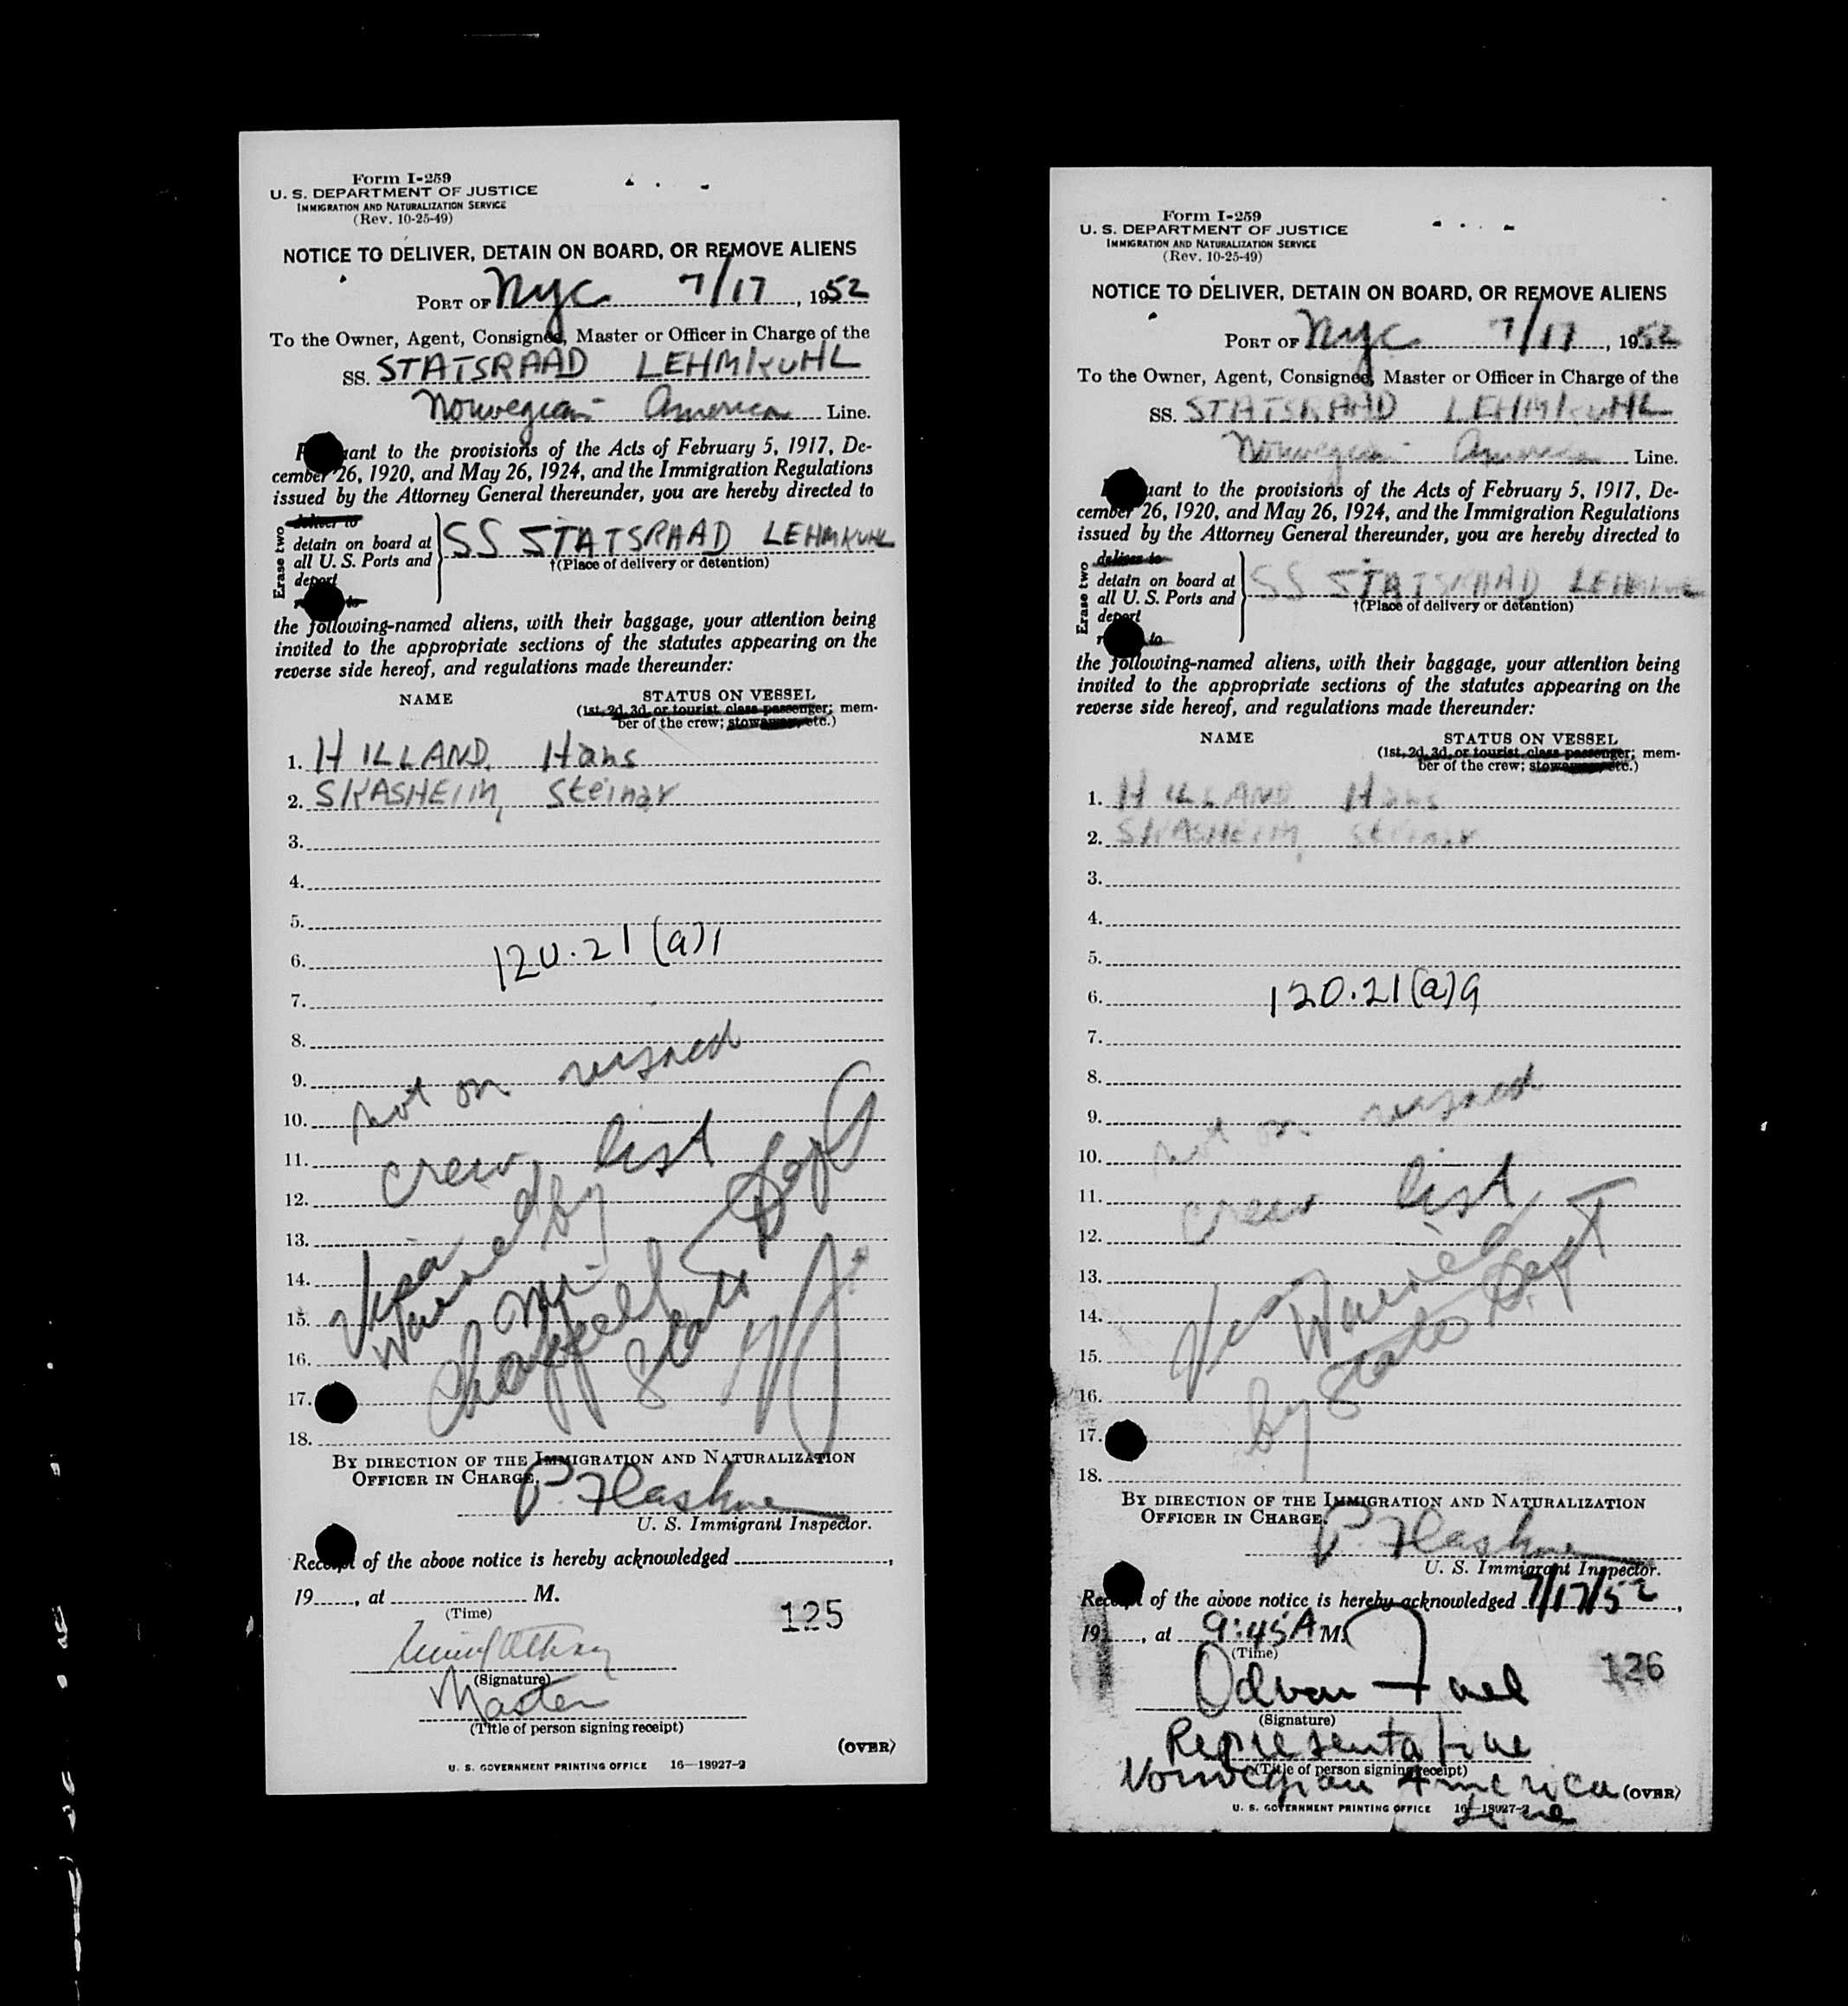 Form I-259
U. S. DEPARTMENT OF JUSTICE
IMMIGRATION AND NATURALIZATION SERVICE
(Rev. 10-25-49)
NOTICE TO DELIVER, DETAIN ON BOARD, OR REMOVE ALIENS
PORT OF Nyc 7/17, 1952
To the Owner, Agent, Consignee, Master or Officer in Charge of the
SS. STATSRAAD LEHMKUHL
Norwegian America Line.
ant to the provisions of the Acts of February 5, 1917, De-
cember 26, 1920, and May 26, 1924, and the Immigration Regulations
issued by the Attorney General thereunder, you are hereby directed to
Erase two
deliver to
detain on board at
all U. S. Ports and
deport
to
SS STATSRAAD LEHMKUHL
†(Place of delivery or detention)
the following-named aliens, with their baggage, your attention being
invited to the appropriate sections of the statutes appearing on the
reverse side hereof, and regulations made thereunder:
NAME STATUS ON VESSEL
(1st, 2d, 3d, or tourist class passenger; mem-
ber of the crew; stowaway, etc.)
1. HILLAND, Hans
2. SKASHEIM, Steinar
3.
4.
5.
6. 120.21(a)1
7.
8.
9. not on visaed
10.
11. crew list
12.
13.
14.
15.
16.
17.
18.
Visa
Waived by
Mr.
Chappell
State Dept
BY DIRECTION OF THE IMMIGRATION AND NATURALIZATION
OFFICER IN CHARGE.
U. S. Immigrant Inspector.
Receipt of the above notice is hereby acknowledged ,
19 , at M.
(Time)
125
(Signature)
Master
(Title of person signing receipt)
(OVER)
U. S. GOVERNMENT PRINTING OFFICE 16—18927-2
Form I-259
U. S. DEPARTMENT OF JUSTICE
IMMIGRATION AND NATURALIZATION SERVICE
(Rev. 10-25-49)
NOTICE TO DELIVER, DETAIN ON BOARD, OR REMOVE ALIENS
PORT OF Nyc 7/17, 1952
To the Owner, Agent, Consignee, Master or Officer in Charge of the
SS. STATSRAAD LEHMKUHL
Norwegian America Line.
uant to the provisions of the Acts of February 5, 1917, De-
cember 26, 1920, and May 26, 1924, and the Immigration Regulations
issued by the Attorney General thereunder, you are hereby directed to
Erase two
deliver to
detain on board at
all U. S. Ports and
deport
to
SS STATSRAAD LEHMKUHL
†(Place of delivery or detention)
the following-named aliens, with their baggage, your attention being
invited to the appropriate sections of the statutes appearing on the
reverse side hereof, and regulations made thereunder:
NAME STATUS ON VESSEL
(1st, 2d, 3d, or tourist class passenger; mem-
ber of the crew; stowaway, etc.)
1. HILLAND Hans
2. SKASHEIM, Steinar
3.
4.
5.
6. 120.21(a)9
7.
8.
9. not on visaed
10.
11. crew list
12.
13.
14.
15.
16.
17.
18.
Visa Waived
by State Dept
BY DIRECTION OF THE IMMIGRATION AND NATURALIZATION
OFFICER IN CHARGE.
U. S. Immigrant Inspector.
Receipt of the above notice is hereby acknowledged 7/17/52,
19 , at 9:45 A M.
(Time)
126
(Signature)
Representative
(Title of person signing receipt)
Norwegian America
Line
(OVER)
U. S. GOVERNMENT PRINTING OFFICE 16—18927-2